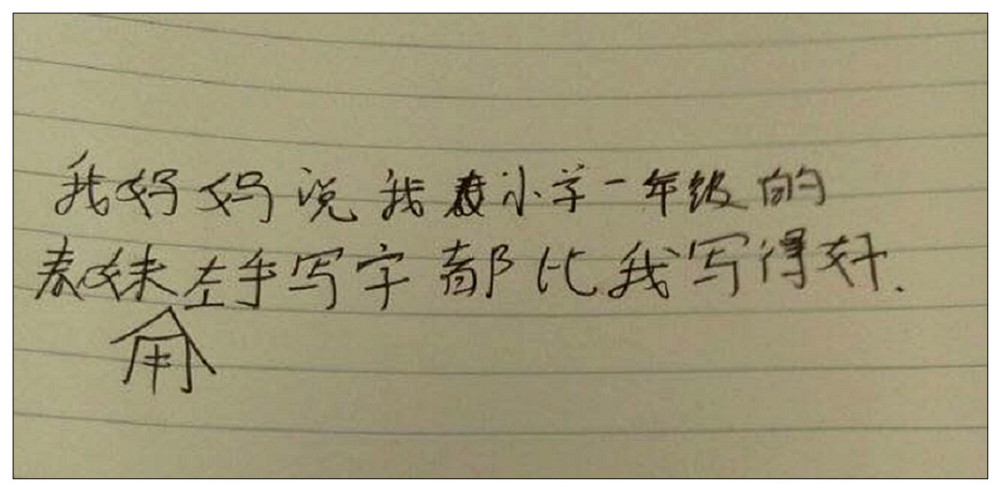 我妈妈说我表小学一年级的
表妹左手写字都比我写得好.
用